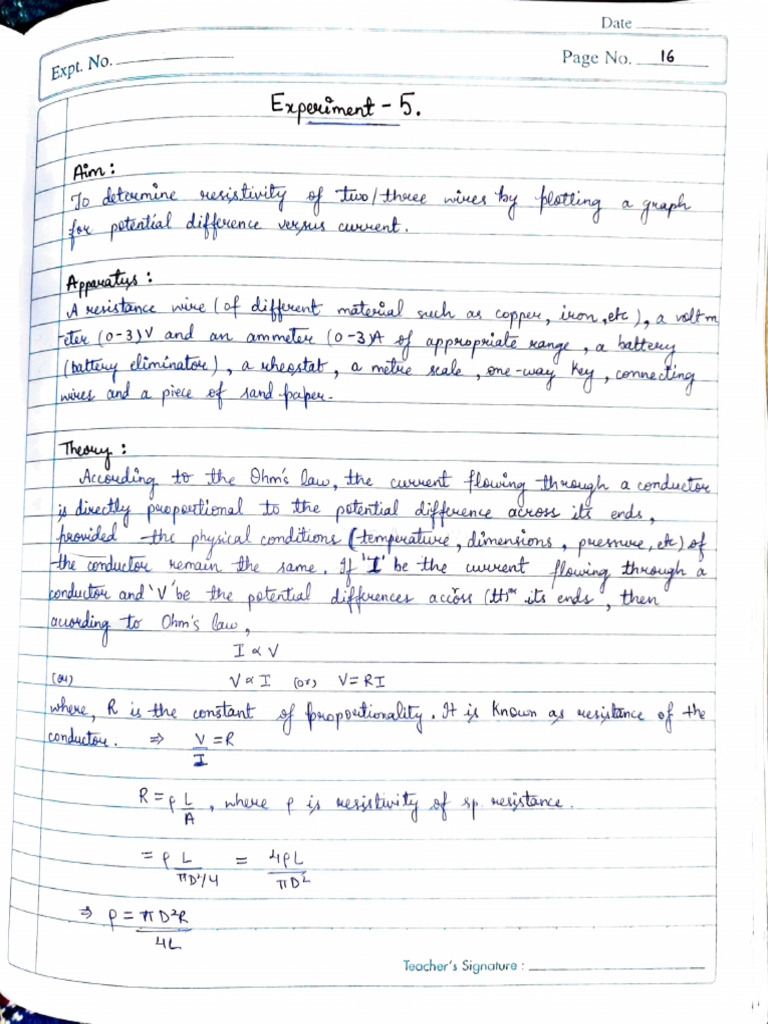 Date
Expt. No.
Page No. 16
Experiment - 5.
Aim :
To determine resistivity of two/three wires by plotting a graph
for potential difference versus current.
Apparatus :
A resistance wire (of different material such as copper, iron, etc), a voltm
-eter (0-3)V and an ammeter (0-3)A of appropriate range, a battery
(battery eliminator), a rheostat, a metre scale, one-way key, connecting
wires and a piece of sand paper.
Theory :
According to the Ohm's law, the current flowing through a conductor
is directly proportional to the potential difference across its ends,
provided the physical conditions (temperature, dimensions, pressure, etc) of
the conductor remain the same. If 'I' be the current flowing through a
conductor and 'V' be the potential differences across its ends, then
according to Ohm's law,
I ∝ V
(or)
V ∝ I (or) V = RI
where, R is the constant of proportionality. It is known as resistance of the
conductor. ⇒ V/I = R
R = ρ L/A, where ρ is resistivity of sp. resistance.
= ρ L/πD²/4 = 4ρL/πD²
⇒ ρ = πD²R/4L
Teacher's Signature :